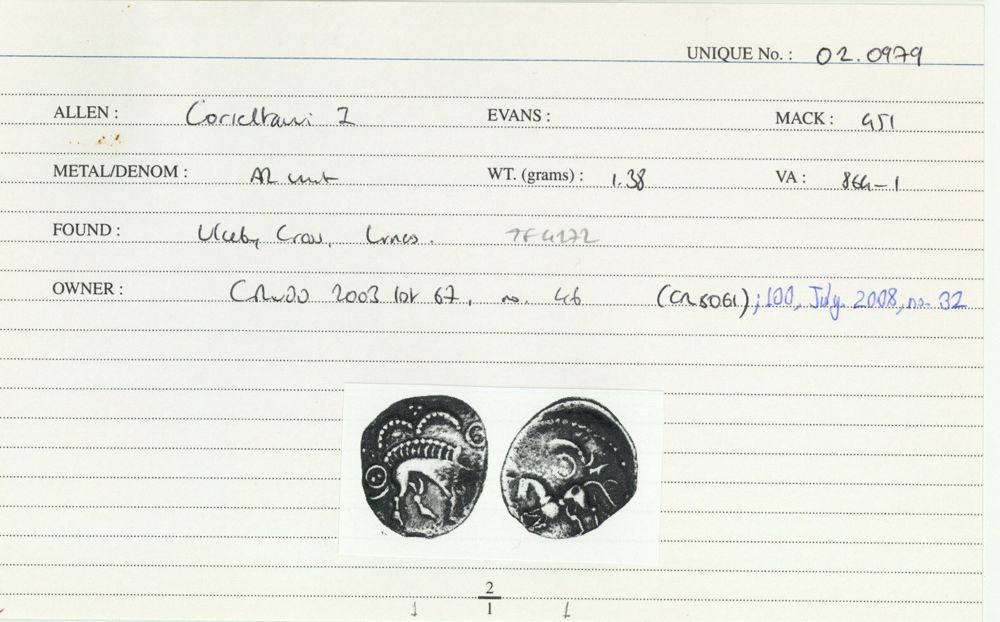 UNIQUE No. : 02.0979
ALLEN : Corieltauvi I EVANS : MACK : 451
METAL/DENOM : AR unit WT. (grams) : 1.38 VA : 864-1
FOUND : Ulceby Cross, Lincs. TF4172
OWNER : 2003 lot 67, no. 46 (CR8061); 100, July. 2008, no. 32
2
1